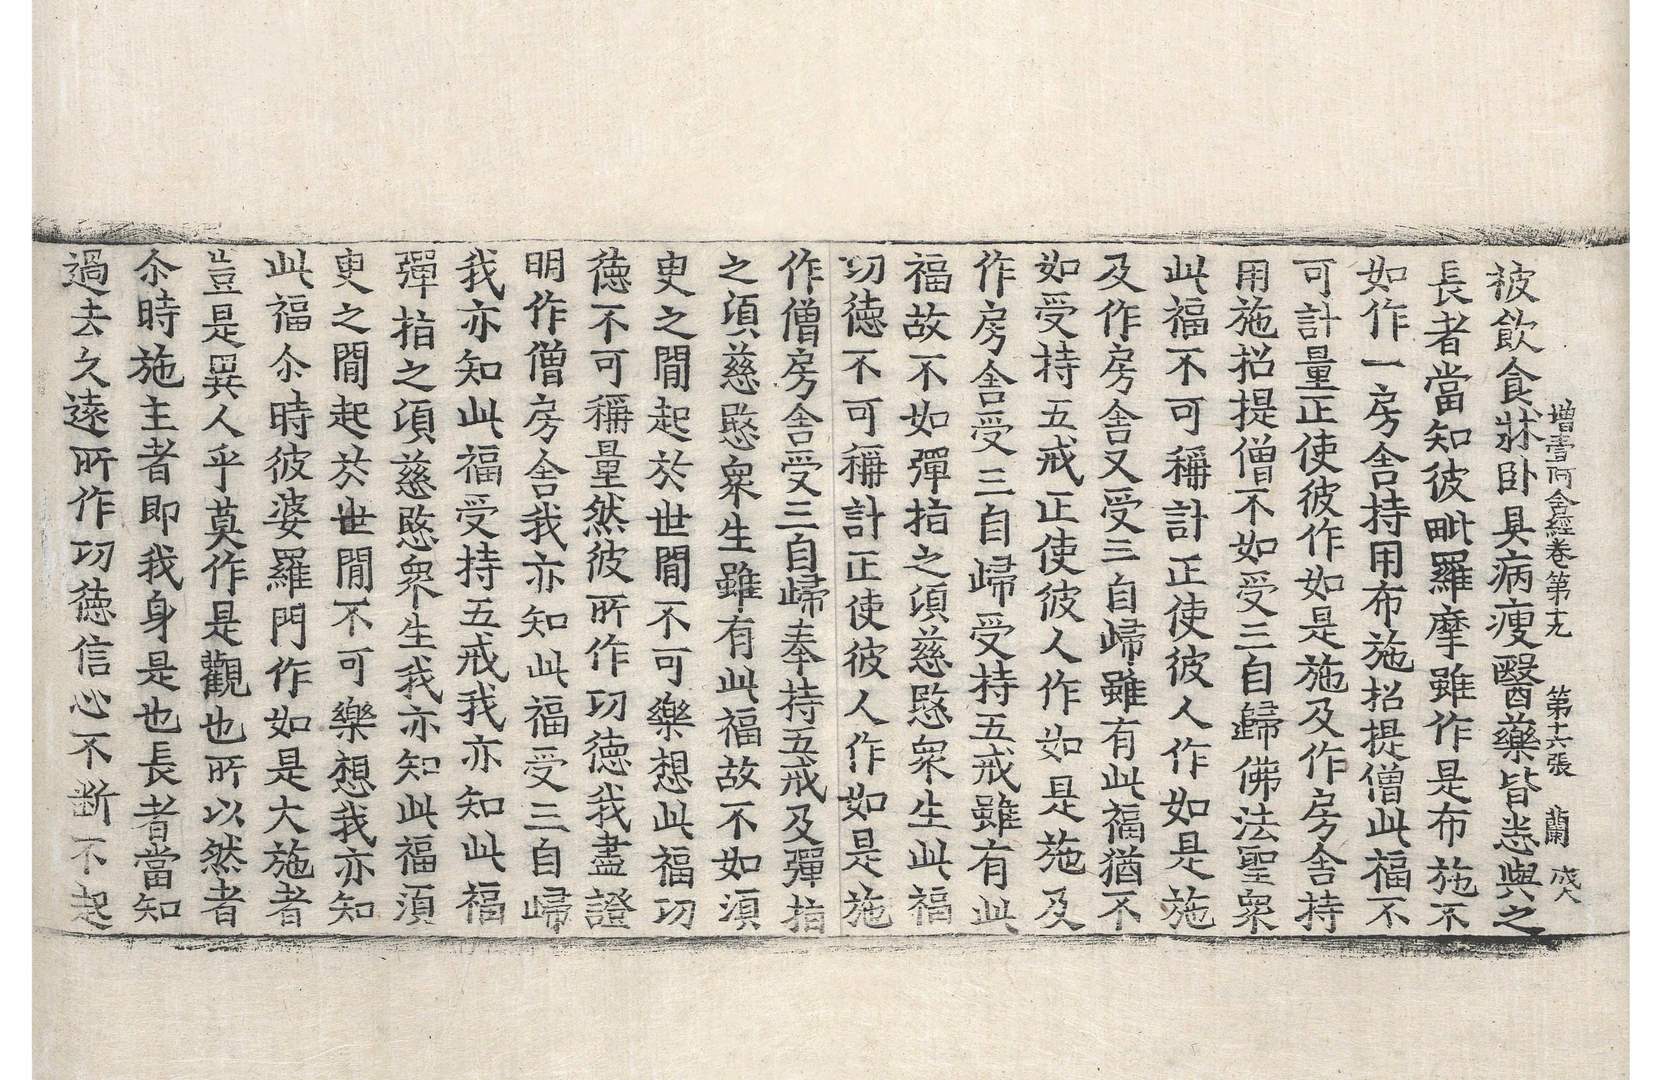 增壹阿含經卷第十九　第十六張　蘭
被飲食牀卧具病瘦醫藥皆悉與之
長者當知彼毗羅摩雖作是布施不
如作一房舍持用布施招提僧此福不
可計量正使彼作如是施及作房舍持
用施招提僧不如受三自歸佛法聖衆
此福不可稱計正使彼人作如是施
及作房舍又受三自歸雖有此福猶不
如受持五戒正使彼人作如是施及
作房舍受三自歸受持五戒雖有此
福故不如彈指之頃慈愍衆生此福
功德不可稱計正使彼人作如是施
作僧房舍受三自歸奉持五戒及彈指
之頃慈愍衆生雖有此福故不如須
臾之閒起於世閒不可樂想此福功
德不可稱量然彼所作功德我盡證
明作僧房舍我亦知此福受三自歸
我亦知此福受持五戒我亦知此福
彈指之頃慈愍衆生我亦知此福須
臾之閒起於世閒不可樂想我亦知
此福尒時彼婆羅門作如是大施者
豈是異人乎莫作是觀也所以然者
尒時施主者即我身是也長者當知
過去久遠所作功德信心不斷不起